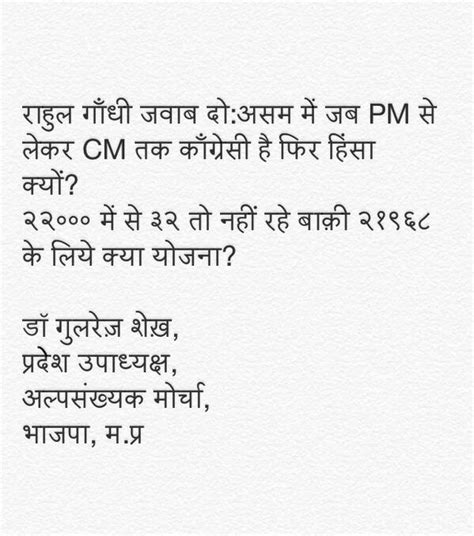 राहुल गाँधी जवाब दो:असम में जब PM से
लेकर CM तक काँग्रेसी है फिर हिंसा
क्यों?
२२००० में से ३२ तो नहीं रहे बाक़ी २१९६८
के लिये क्या योजना?
डॉ गुलरेज़ शेख़,
प्रदेश उपाध्यक्ष,
अल्पसंख्यक मोर्चा,
भाजपा, म.प्र